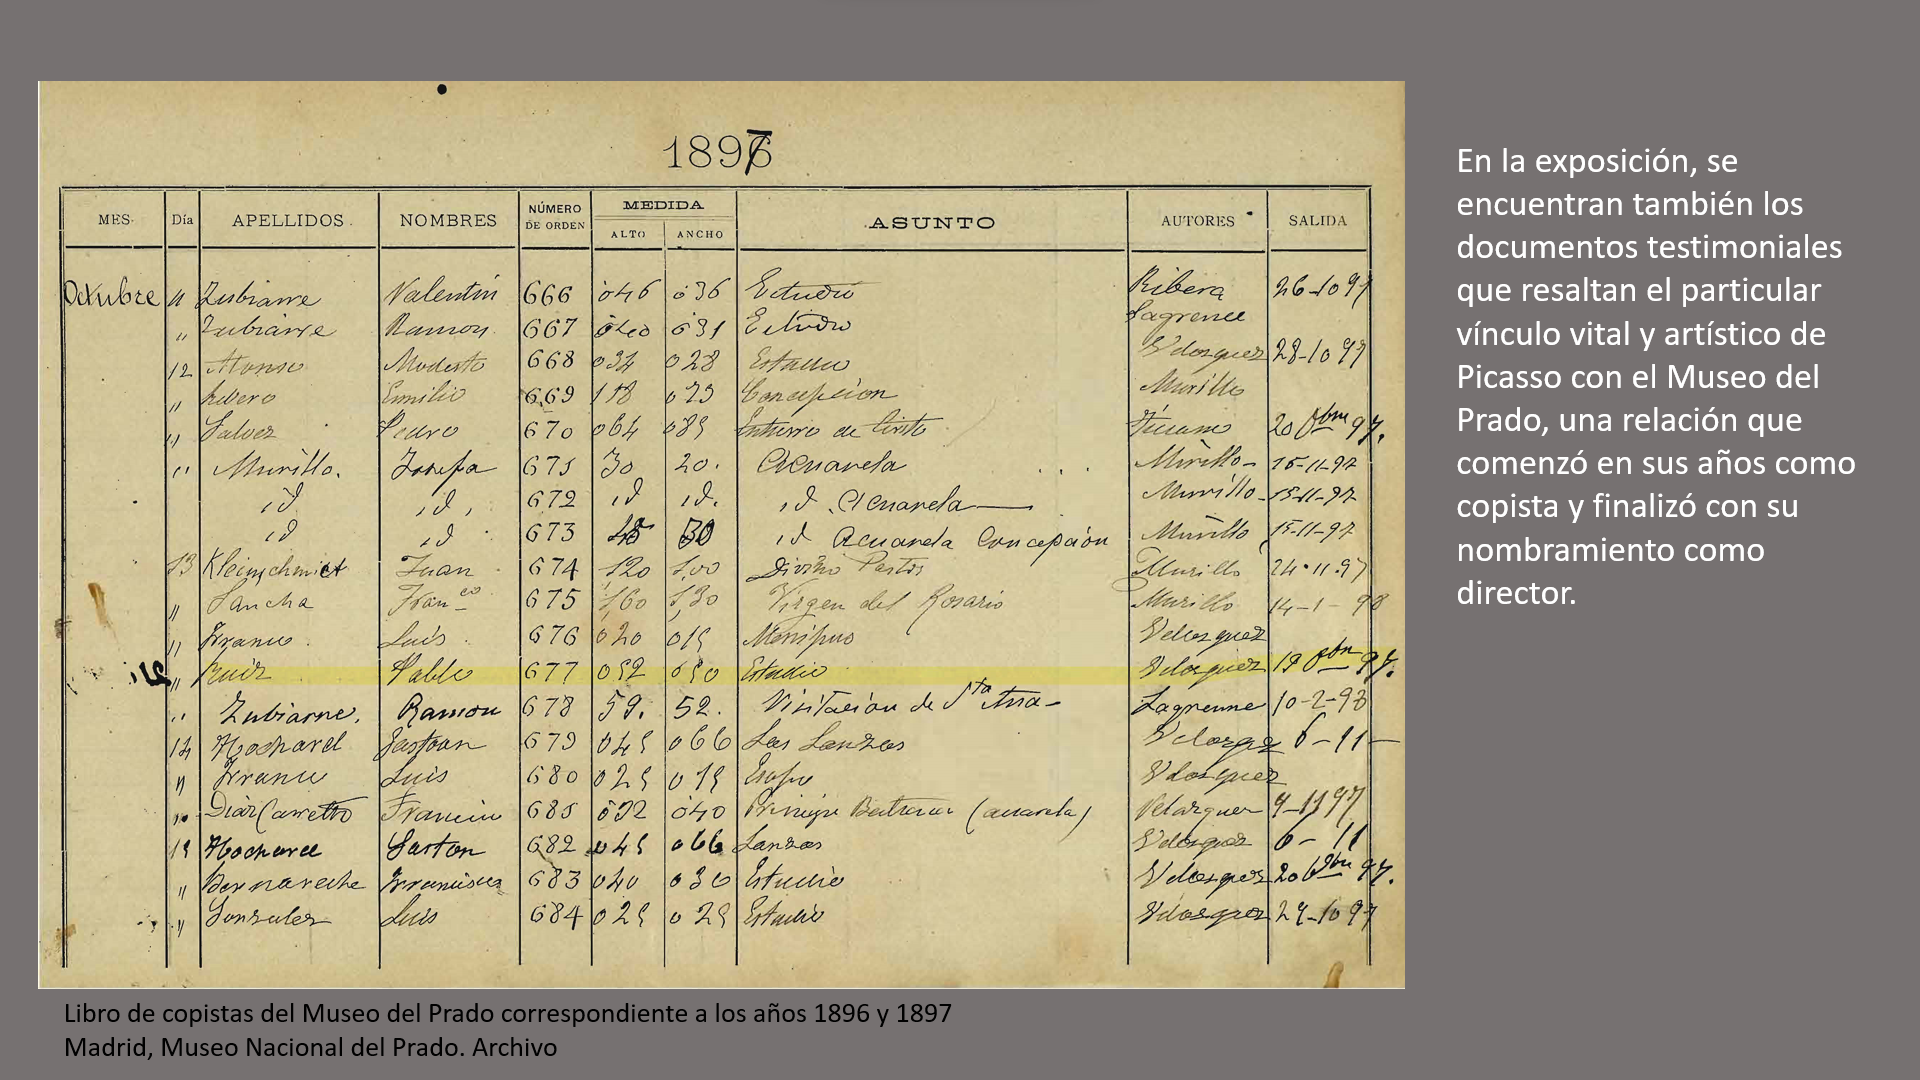 1897
MES. Día APELLIDOS. NOMBRES NÚMERO DE ORDEN MEDIDA ALTO ANCHO ASUNTO AUTORES SALIDA
Octubre 11 Zubiarre Valentin 666 046 036 Estudio Ribera 26-10 97
" Zubiarre Ramon 667 Estudio Lagrenee
12 Alonso Modesto 668 034 028 Estudio Velazquez 28-10 97
" Ribero Emilio 669 Concepcion Murillo
" Pedro 670 064 085 Entierro de Cristo 20 8bre 97.
" Murillo. Josefa 671 30 20. Acuarela Murillo- 15-11-97
id id, 672 id id. id. Acuarela Murillo-15-11-97
id id 673 30 id Acuarela Concepción Murillo 15-11-97
13 Juan 674 120 1,00 Divino Pastor Murillo 24-11-97
" Sancha Franco 675 1,60 1,30 Virgen del Rosario Murillo 14-1-98
" Luis. 676 020 015 Menipus Velazquez
" Ruiz Pablo 677 Estudio Velazquez 19 8bre 97.
" Zubiarre. Ramon 678 59. 52. Visitación de Sta Ana- Lagrenne 10-2-98
14 679 045 066 Las Lanzas Velazquez 6-11-
" Luis 680 025 015 Esopo Velazquez
" 681 040 Principe Baltasar (acuarela) Velazquez 9-11 97
15 Gaston 682 045 066 Lanzas Velazquez 6-11
" 683 040 030 Estudio Velazquez 20 8bre 97.
" Gonzalez Luis 684 025 025 Estudio Velazquez 29-10 97
Libro de copistas del Museo del Prado correspondiente a los años 1896 y 1897
Madrid, Museo Nacional del Prado. Archivo
En la exposición, se
encuentran también los
documentos testimoniales
que resaltan el particular
vínculo vital y artístico de
Picasso con el Museo del
Prado, una relación que
comenzó en sus años como
copista y finalizó con su
nombramiento como
director.